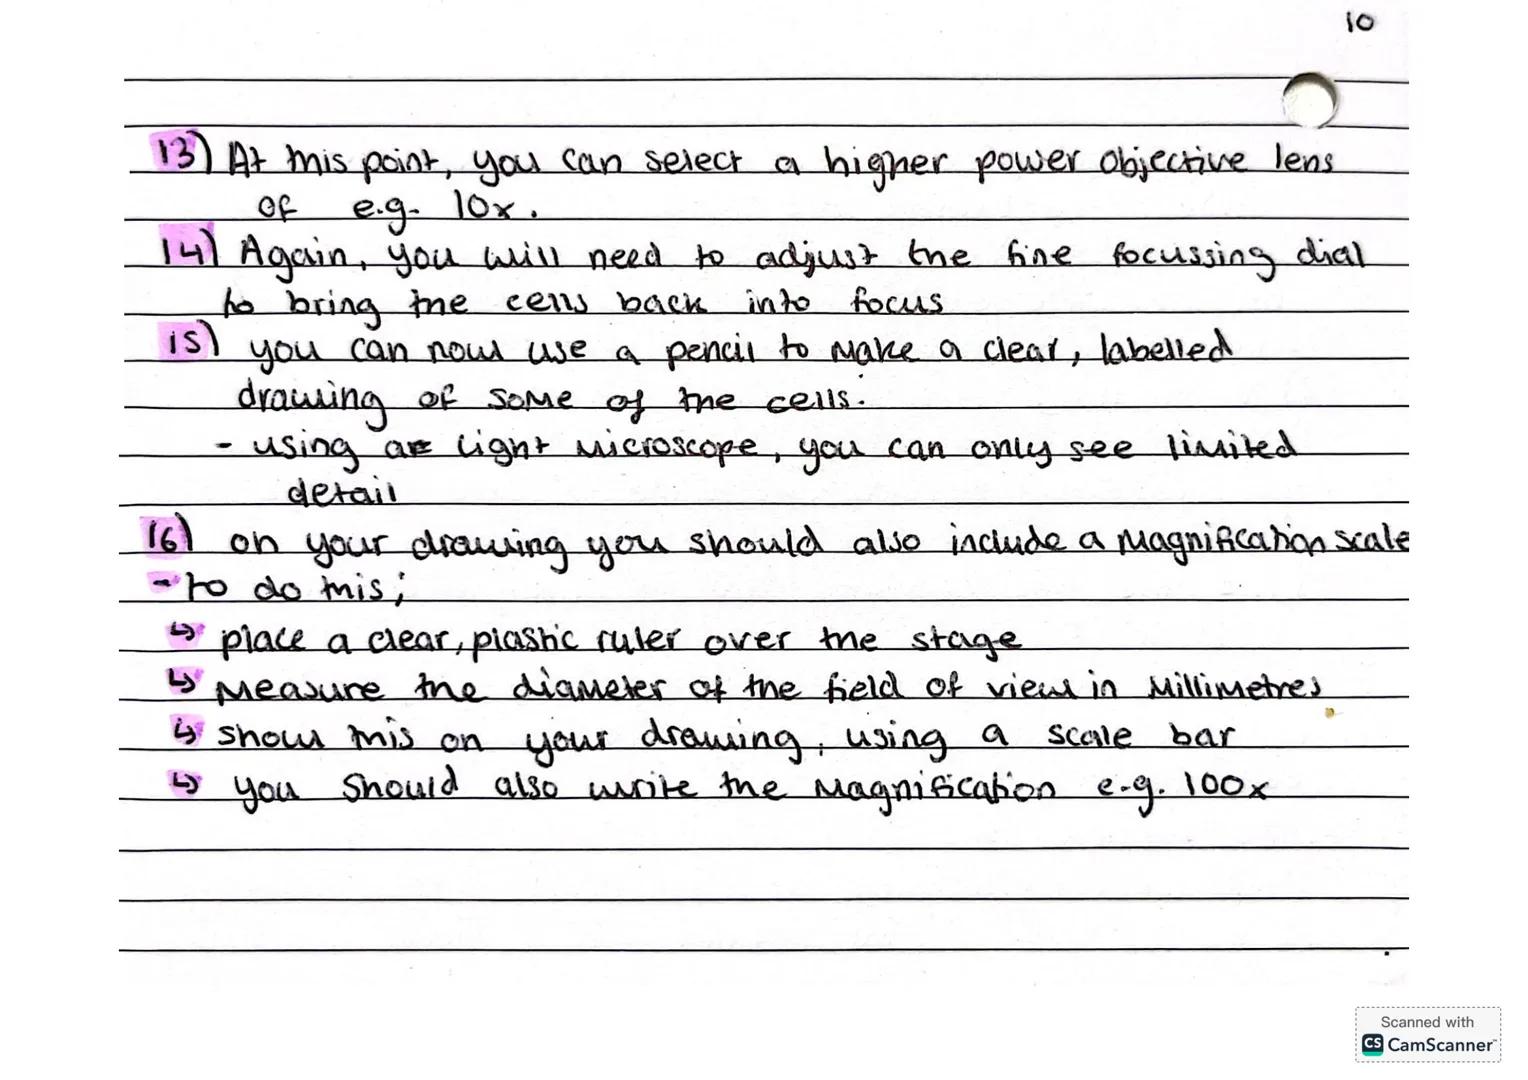 10
13) At this point, you can select a higher power objective lens
of e.g. 10x.
14) Again, you will need to adjust the fine focussing dial
to bring the cells back into focus
15) you can now use a pencil to make a clear, labelled
drawing of some of the cells.
- using a light microscope, you can only see limited
detail
16) on your drawing you should also include a magnification scale
- to do this;
↳ place a clear, plastic ruler over the stage
↳ measure the diameter of the field of view in millimetres
↳ show this on your drawing, using a scale bar
↳ you should also write the magnification e.g. 100x
Scanned with
CS CamScanner